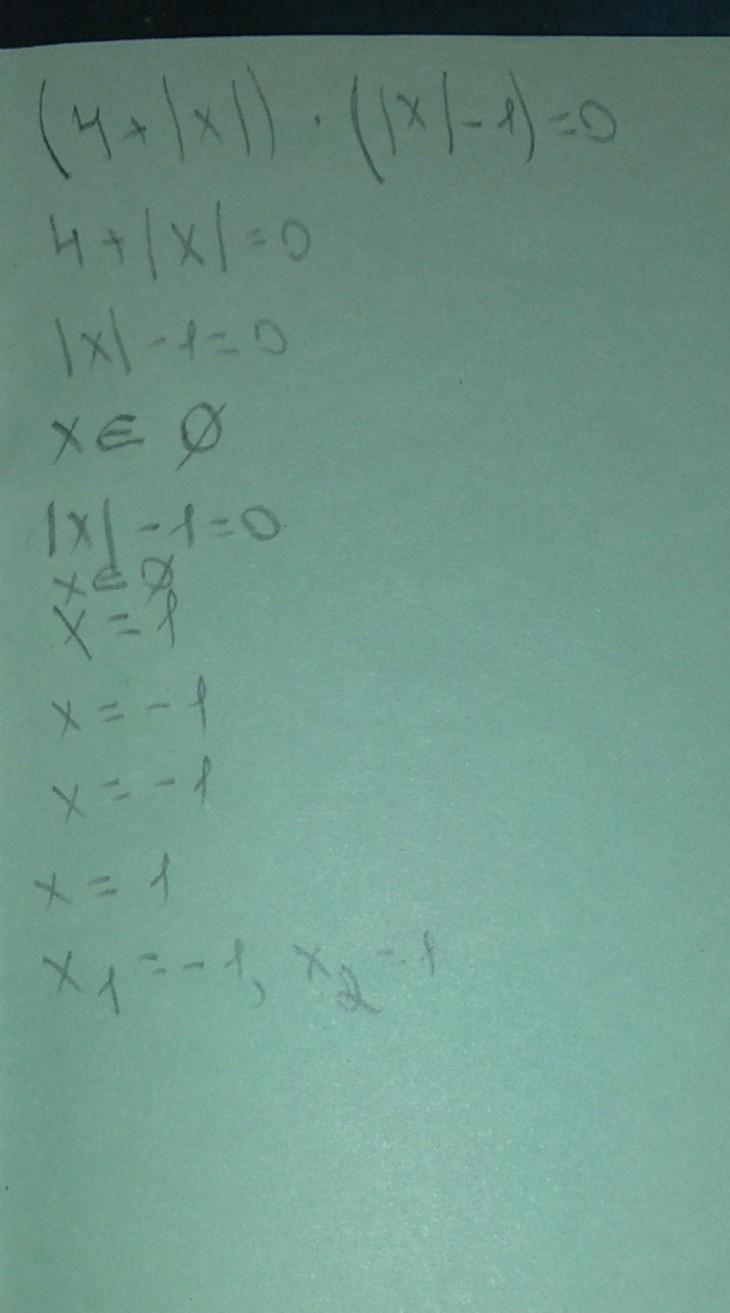 (4+|x|)·(|x|-1)=0
4+|x|=0
|x|-1=0
x∈∅
|x|-1=0
x∈∅
x=1
x=-1
x=-1
x=1
x₁=-1, x₂=1